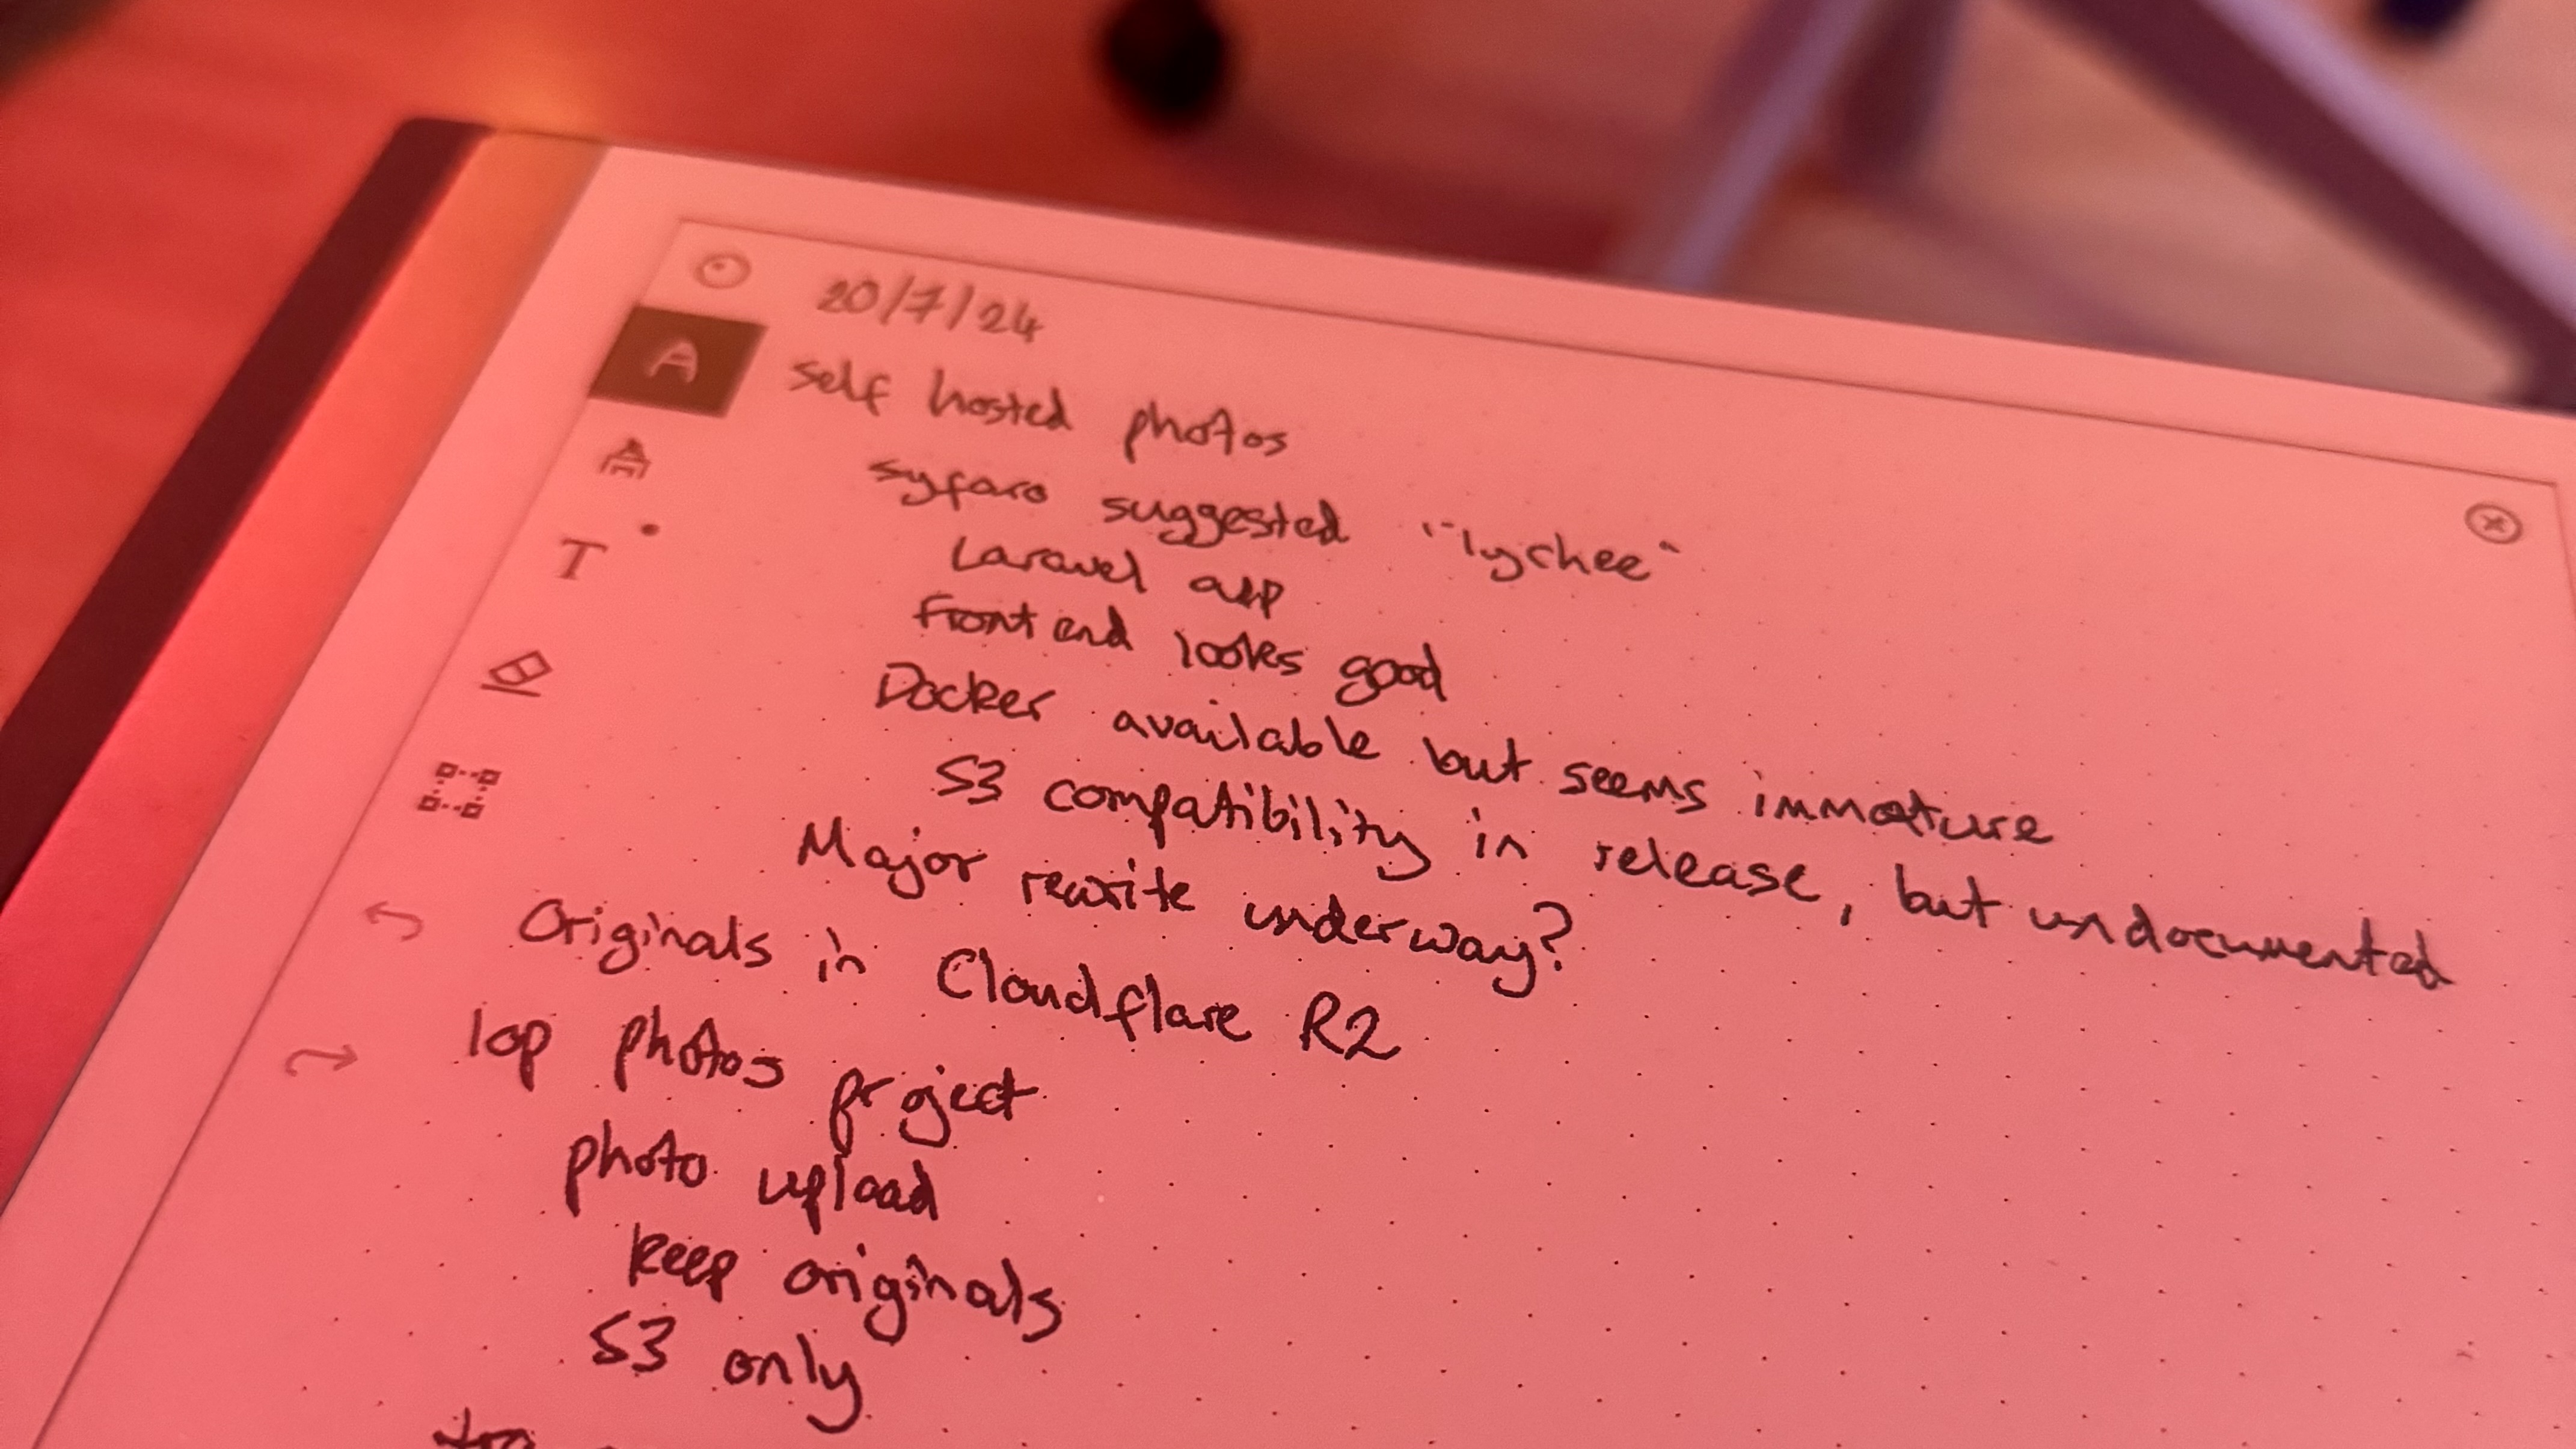 20/7/24
self hosted photos
syfaro suggested "lychee"
Laravel app
Frontend looks good
Docker available but seems immature
S3 compatibility in release, but undocumented
Major rewrite underway?
Originals in Cloudflare R2
lop photos project
photo upload
keep originals
S3 only
A
T